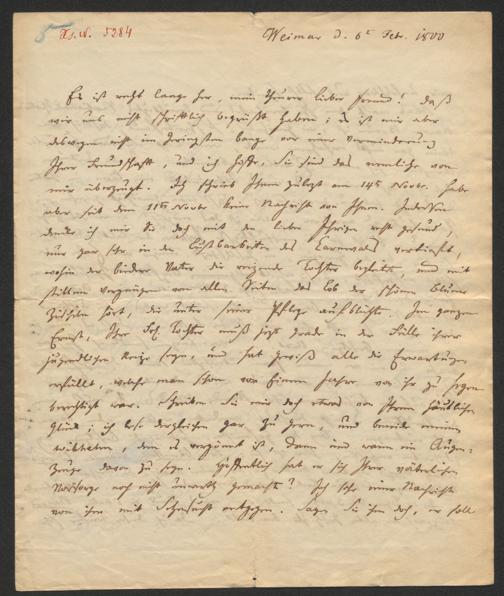 5
Is.N. 5284
Weimar d. 6t Febr. 1800
Es ist recht lange her, mein theurer lieber Freund! daß
wir uns nicht schriftlich begrüßt haben; es ist mir aber
deswegen nicht im geringsten bange vor einer Verminderung
Ihrer Freundschaft, und ich hoffe, Sie sind das nemliche von
mir überzeugt. Ich schrieb Ihnen zulezt am 14t Novbr. habe
aber seit dem 11t Novbr keine Nachricht von Ihnen. Indessen
denke ich mir Sie doch mit den lieben Ihrigen recht gesund,
nur gar sehr in den Lustbarkeiten des Carnevals vertieft,
wohin der Vater die reizende Tochter begleitet, und mit
stillem vergnügen von allen Seiten das Lob der schönen Blume
hört, die unter seiner Pflege aufblühte. Im ganzen
Ernst, Ihre Tochter muß jezt grade in der Fülle ihrer
jugendlichen Reize seyn, und hat gewiß alle die Erwartungen
erfüllt, welche man schon vor einem Jahre von ihr zu hegen
berechtigt war. Schreiben Sie mir doch etwas von Ihrem häuslichen
Glück; ich lese dergleichen gar zu gern, und beneide
dem es vergönnt ist, dann und wann ein Augen-
Zeuge davon zu seyn. Hoffentlich hat er sich Ihrer väterlichen
Vorsorge noch nicht unwerth gemacht? Ich sehe einer Nachricht
von ihm mit Sehnsucht entgegen. Sagen Sie ihm doch, er soll